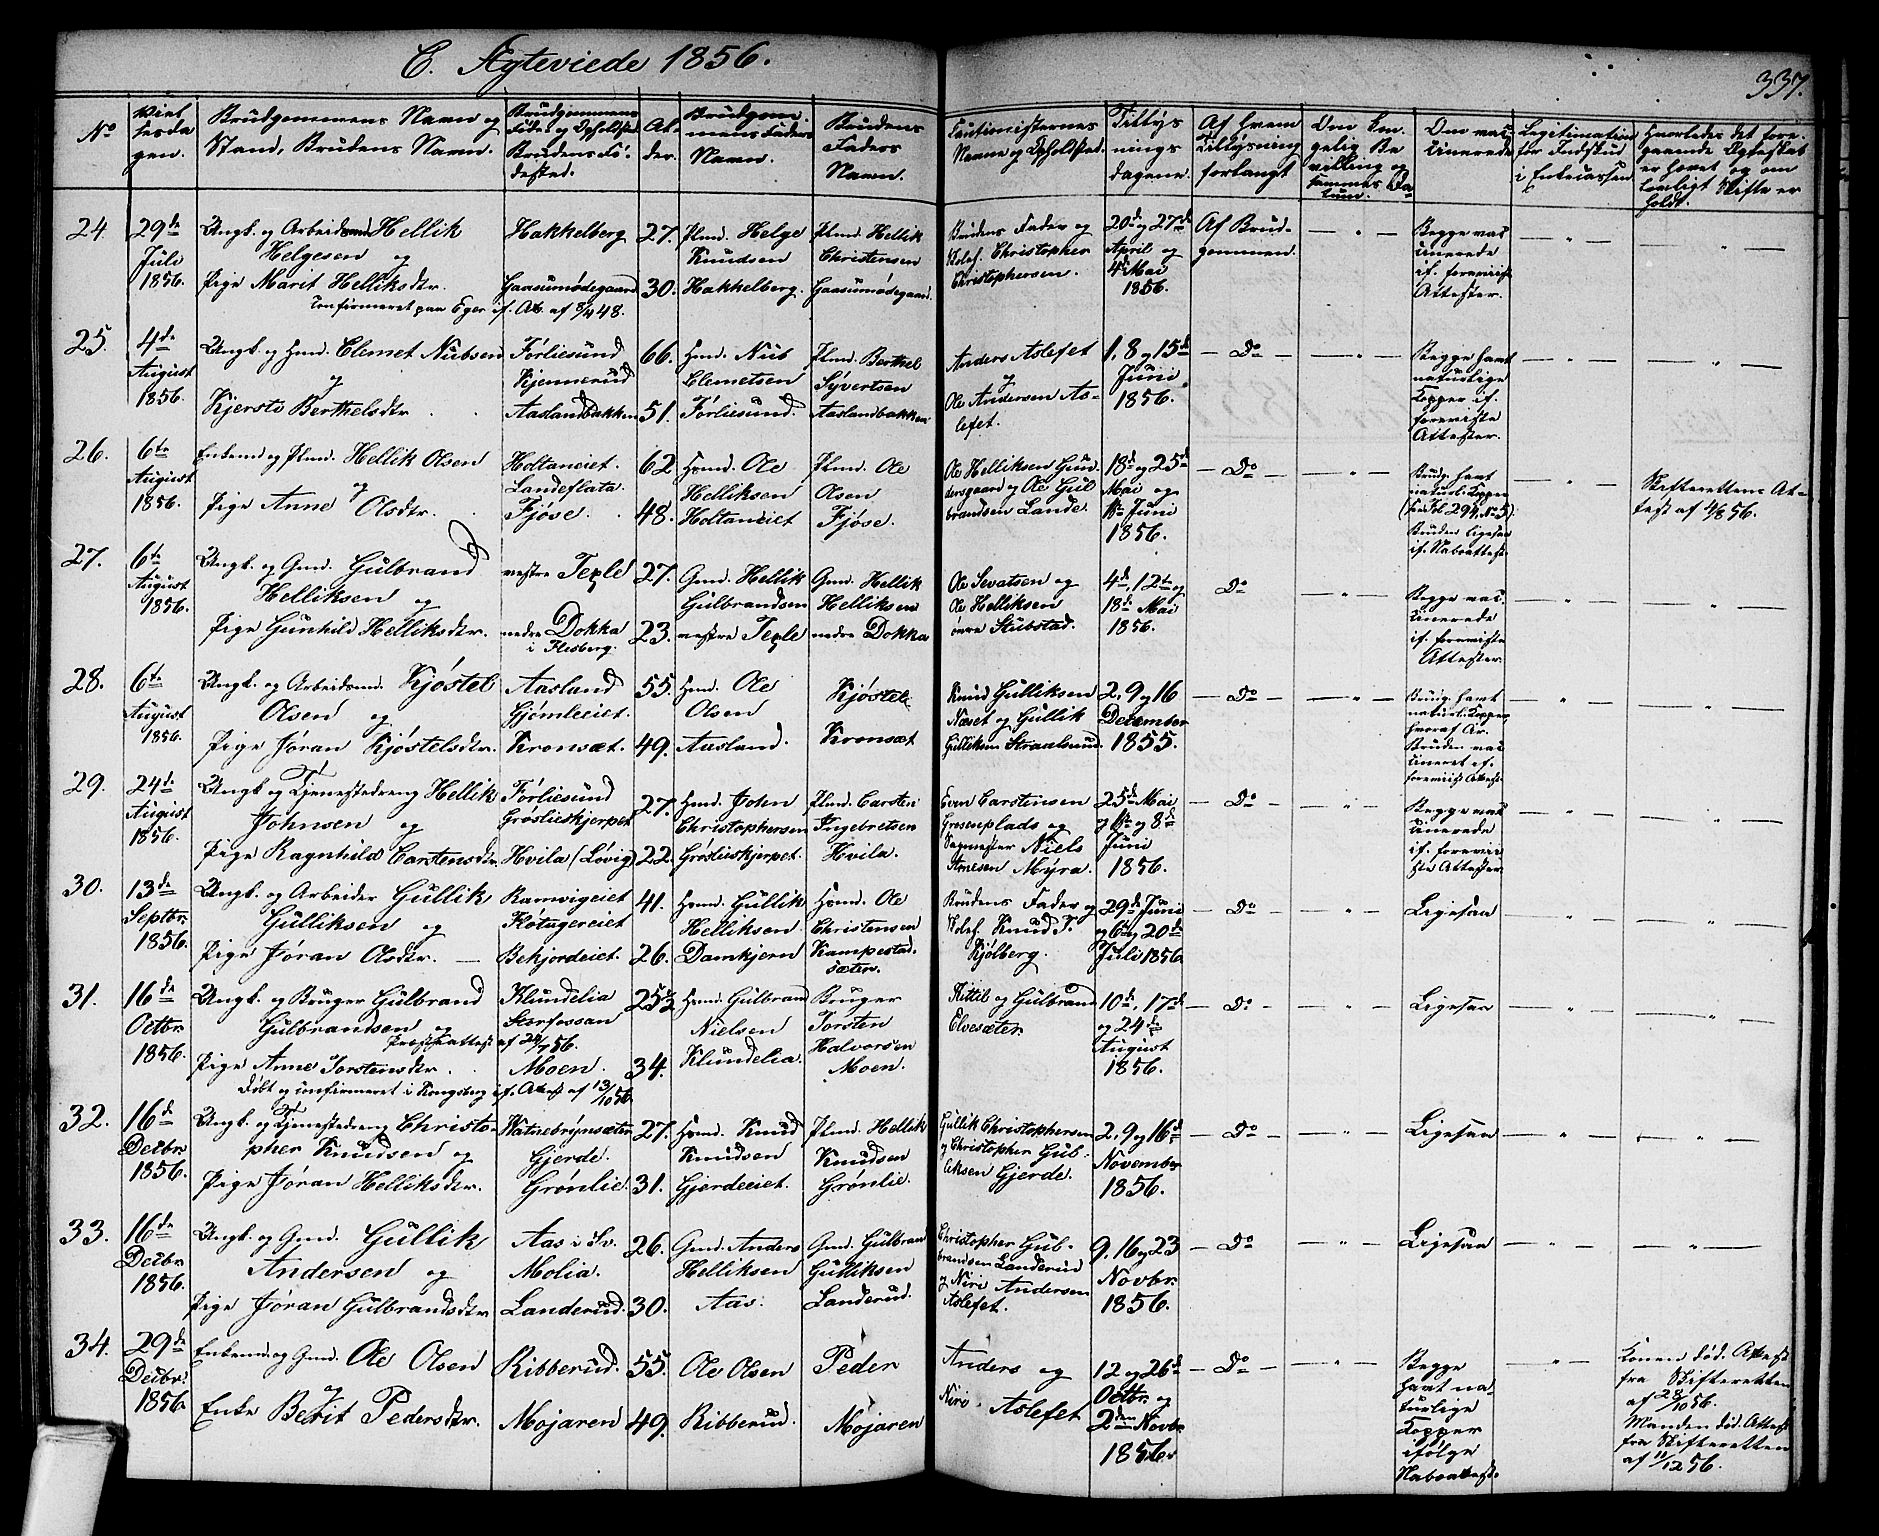 C. Ægteviede 1856.
337.
No
Viel-
sesda
gen.
Brudgommens Navn og
Stand, Brudens Navn.
Brudgommens
Føde- og Opholdsted
Brudens Fø-
dested.
Al-
der.
Brudgom-
mens Faders
Navn.
Brudens
Faders
Navn.
Cautionisternes
Navne og Opholdsted.
Tillys
nings
dagene.
Af hvem
Tillysning
forlangt
Om Kon
gelig Be
villing og
sammes Da-
tum.
Om vac-
cinerede
Legitimation
for Indskud
i Enkecassen.
Hvorledes det fore-
gaaende Ægteskab
er hævet og om
lovligt Skifte er
holdt.
24
29de
Juli
1856.
Ungk. og Arbeidsmd Hellik
Helgesen og
Pige Marit Helliksdtr.
Confirmeret paa Eger if. Att. af 8/4 48.
Hakkelberg
Gaasumødegaard
27.
30.
Plmd. Helge
Knudsen
Hakkelberg.
Plmd. Hellik
Christensen
Gaasumødegaard.
Brudens Fader og
Kolef. Christopher
Christophersen.
20de og 27de
April og
4de Mai
1856.
Af Brud-
gommen.
"
Begge vac
cinerede
if. foreviiste
Attester.
"
"
25.
4de
August
1856.
Ungk. og Hmd. Clemet Nubsen
og
Kjersto Berthelsdtr
Førliesund
Kjennerud
Aaslandbakken
66.
51.
Hmd. Nub
Clemetsen
Førliesund.
Plmd. Berthel
Syvertsen
Aaslandbakken
Anders Aslefet
og
Ole Andersen As-
lefet.
1, 8 og 15de
Juni
1856.
Do
"
Begge havt
naturlige
Kopper if.
foreviiste
Attester.
"
"
26.
6te
August
1856.
Enkemd og Plmd. Hellik Olsen
og
Pige Anne Olsdtr.
Holtaneiet.
Landeflata.
Fjøse.
62
48.
Hmd. Ole
Helliksen
Holtaneiet
Plmd. Ole
Olsen
Fjøse.
Ole Helliksen Gun-
dersgaard og Ole Gul
brandsen Lande.
18de og 25de
Mai og
1ste Juni
1856.
Do
"
Brudg. havt
naturl. Kopper
(see Fol. 294, No 5)
Bruden Ligesaa
if. Naboattest.
"
Skifterettens At-
test af 4/8 56.
27.
6te
August
1856.
Ungk. og Gmd. Gulbrand
Helliksen og
Pige Gunhild Helliksdtr.
nestre Tegle
nedre Dokka
i Flesberg.
27.
23.
Gmd. Hellik
Gulbrandsen
nestre Tegle
Gmd. Hellik
Helliksen
nedre Dokka
Ole Sevatsen og
Ole Helliksen
øvre Stubstad.
4de, 12te og
18de Mai
1856.
Do
"
Begge vac-
cinerede
if. foreviiste
Attester.
"
"
28.
6te
August
1856.
Ungk. og Arbeidsmd. Kjøstel
Olsen og
Pige Jøran Kjøstelsdtr.
Aasland
Gjømleeiet.
Kronsæt.
55.
49.
Hmd. Ole
Olsen
Aasland.
Kjøstel
Kronsæt
Knud Gulliksen
Næset og Gullik
Gulliksen Straalsund.
2, 9 og 16
December
1855.
Do
"
Brudg. havt
naturl. Kopper
hvoraf Ar.
Bruden vac
cineret if.
foreviist Attest.
"
"
29.
24de
August
1856.
Ungk. og Tjenestedreng Hellik
Johnsen og
Pige Ragnhild Carstensdtr.
Førliesund
Grøslieskjerpet
Hvila (Løvig)
27.
22.
Hmd. John
Christophersen
Grøslieskjerpet.
Plmd. Carsten
Ingebretsen
Hvila.
Even Carstensen
Groseneplads og
Sagmester Niels
Arnesen Myra.
25de Mai
og 1ste og 8de
Juni
1856.
Do
"
Begge vac
cinerede
if. forevii
ste Attester.
"
"
30.
13de
Septbr.
1856.
Ungk. og Arbeider Gullik
Gulliksen og
Pige Jøran Olsdtr.
Ramvigeiet
Køtugereiet
Bekjordeiet.
41.
26.
Hmd. Gullik
Helliksen.
Damkjern
Hmd. Ole
Christensen
Kampestad-
sæter.
Brudens Fader og
Kolef. Knud J.
Kjølberg.
29de Juni
og 6te og 20de
Juli 1856
Do
"
Ligesaa
"
"
31.
16de
Octbr.
1856.
Ungk. og Bruger Gulbrand
Gulbrandsen og
Præsteattest af 20/7 56.
Pige Anne Torstensdtr.
Døbt og confirmeret i Kongsberg if. Attest af 13/10 56.
Klundelia
Storfossan
Moen.
25½
34.
Hmd. Gulbran
Nielsen
Klundelia.
Bruger
Torsten
Halvorsen
Moen.
Kittil og Gulbrand
Elvesæter.
10de, 17de
og 24de
August
1856.
Do
"
Ligesaa
"
"
32.
16de
Decbr
1856.
Ungk. og Tjenestedreng Christo-
pher Knudsen og
Pige Jøran Helliksdtr.
Vatnebrynsæter
Gjerde.
Grønlie.
27.
31.
Hmd. Knud
Knudsen
Gjerdeeiet.
Plmd. Hellik
Knudsen
Grønlie.
Gullik Christophersen
og Christopher Gul-
liksen Gjerde.
2, 9 og 16de
November
1856.
Do
"
Ligesaa
"
"
33.
16de
Decbr
1856.
Ungk. og Gmd. Gullik
Andersen og
Pige Jøran Gulbrandsdtr
Aas i Sv.
Molia.
Landerud.
26.
30.
Gmd. Anders
Helliksen
Aas.
Gmd. Gulbrand
Gulliksen
Landerud.
Christopher Gul-
brandsen Landerud
og Niri Andersen
Aslefet.
9, 16 og 23
Novbr.
1856.
Do
"
Ligesaa
"
"
34.
29de
Decbr.
1856
Enkemd. og Gmd. Ole Olsen
og
Enke Berit Pedersdtr.
Ribberud.
Mojaren
55.
49.
Ole Olsen
Ribberud.
Peder
Mojaren
Anders og
Niri Aslefet
12 og 26de
Octbr. og
2den Novbr.
1856
Do
"
Begge
havt na-
turlige
Kopper
ifølge
Naboattest.
"
Konen død. Attest
fra Skifteretten
af 28/10 56.
Manden død. Attest
fra Skifteretten
af 11/12 56.